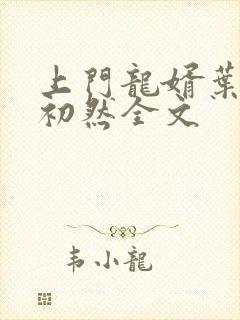 上門龍婿葉
初然全文
韦小龍